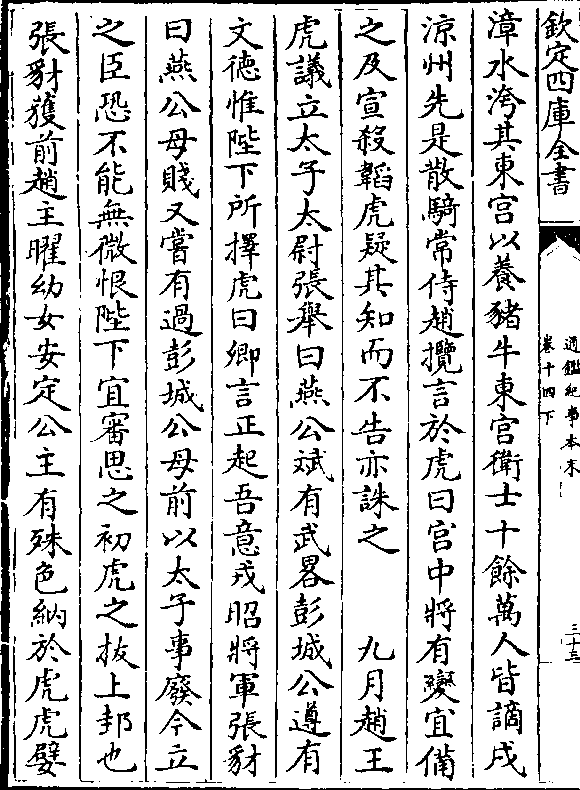 欽定四庫全書
通鑑紀事本末
卷十四下
三十三
漳水洿其東宫以養豬牛東宫衛士十餘萬人皆謫戍
涼州先是散騎常侍趙攬言於虎曰宫中將有變宜備
之及宣殺韜虎疑其知而不告亦誅之　　九月趙王
虎議立太子太尉張舉曰燕公斌有武畧彭城公遵有
文徳惟陛下所擇虎曰卿言正起吾意戎昭將軍張豺
曰燕公母賤又嘗有過彭城公母前以太子事廢今立
之臣恐不能無微恨陛下宜審思之初虎之拔上邽也
張豺獲前趙主曜幼女安定公主有殊色納於虎虎嬖